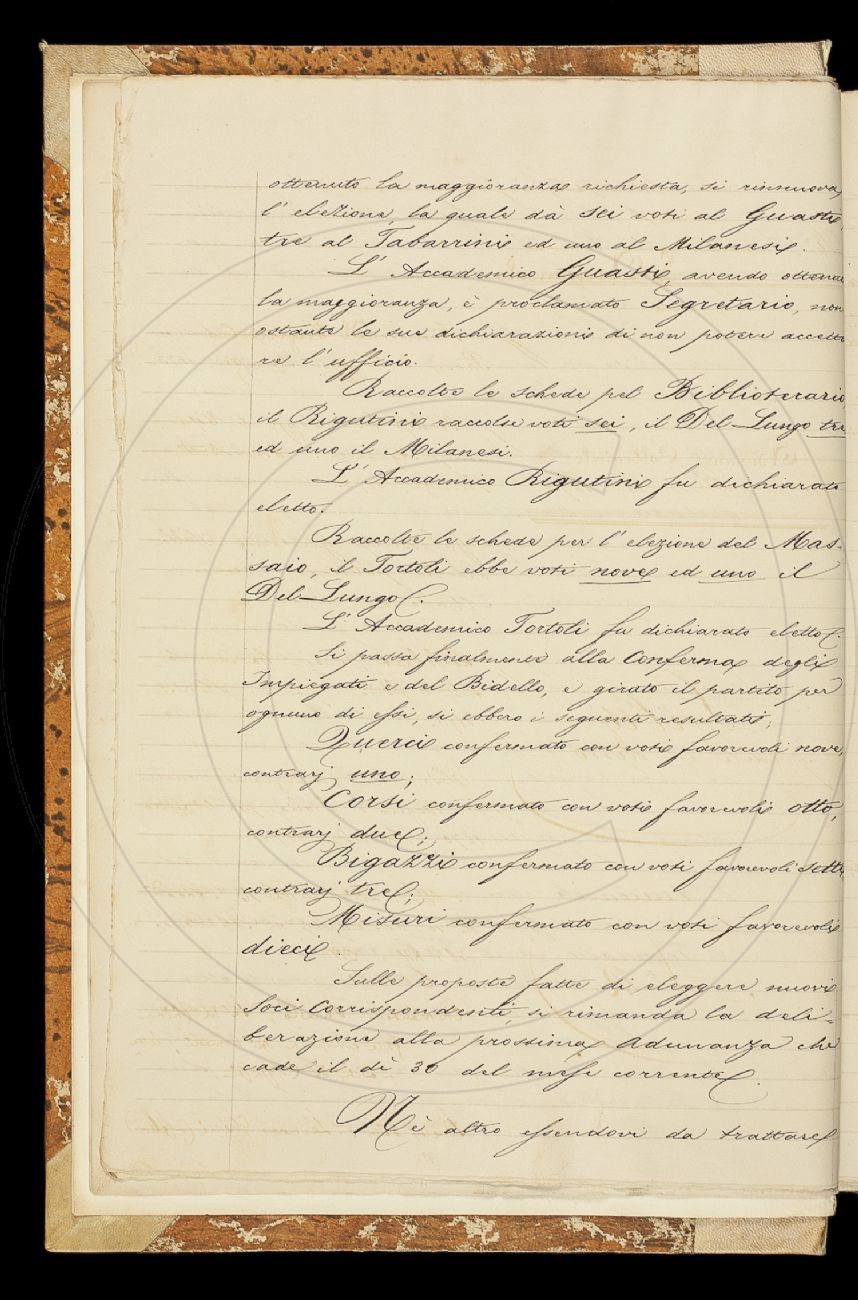 ottenuto la maggioranza richiesta, si rinnuova
l'elezione, la quale dà sei voti al Guasti,
tre al Tabarrini ed uno al Milanesi.
L'Accademico Guasti, avendo ottenuta
la maggioranza, è proclamato Segretario, non
ostante le sue dichiarazioni di non potere accetta
re l'ufficio.
Raccolte le schede pel Bibliotecario,
il Rigutini raccolse voti sei, il Del-Lungo tre
ed uno il Milanesi.
L'Accademico Rigutini fu dichiarato
eletto.
Raccolte le schede per l'elezione del Mas-
saio, il Tortoli ebbe voti nove ed uno il
Del-Lungo.
L'Accademico Tortoli fu dichiarato eletto.
Si passa finalmente alla conferma degli
Impiegati e del Bidello, e girato il partito per
ognuno di essi, si ebbero i seguenti resultati;
Querci confermato con voti favorevoli nove,
contrarj uno;
Corsi confermato con voti favorevoli otto,
contrarj due;
Bigazzi confermato con voti favorevoli sette
contrarj tre;
Misuri confermato con voti favorevoli
dieci.
Sulle proposte fatte di eleggere nuovi
Soci corrispondenti, si rimanda la deli-
berazione alla prossima Adunanza che
cade il dì 30 del mese corrente.
Nè altro essendovi da trattare